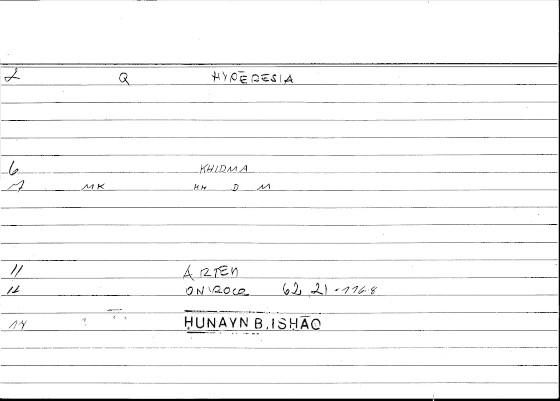 2 Q HYPĒRESIA
6 KHIDMA
7 MK KH D M
11 ARTEM
12 ONIROCR 62, 21 - 1168
14 ḤUNAYN B. ISḤĀQ